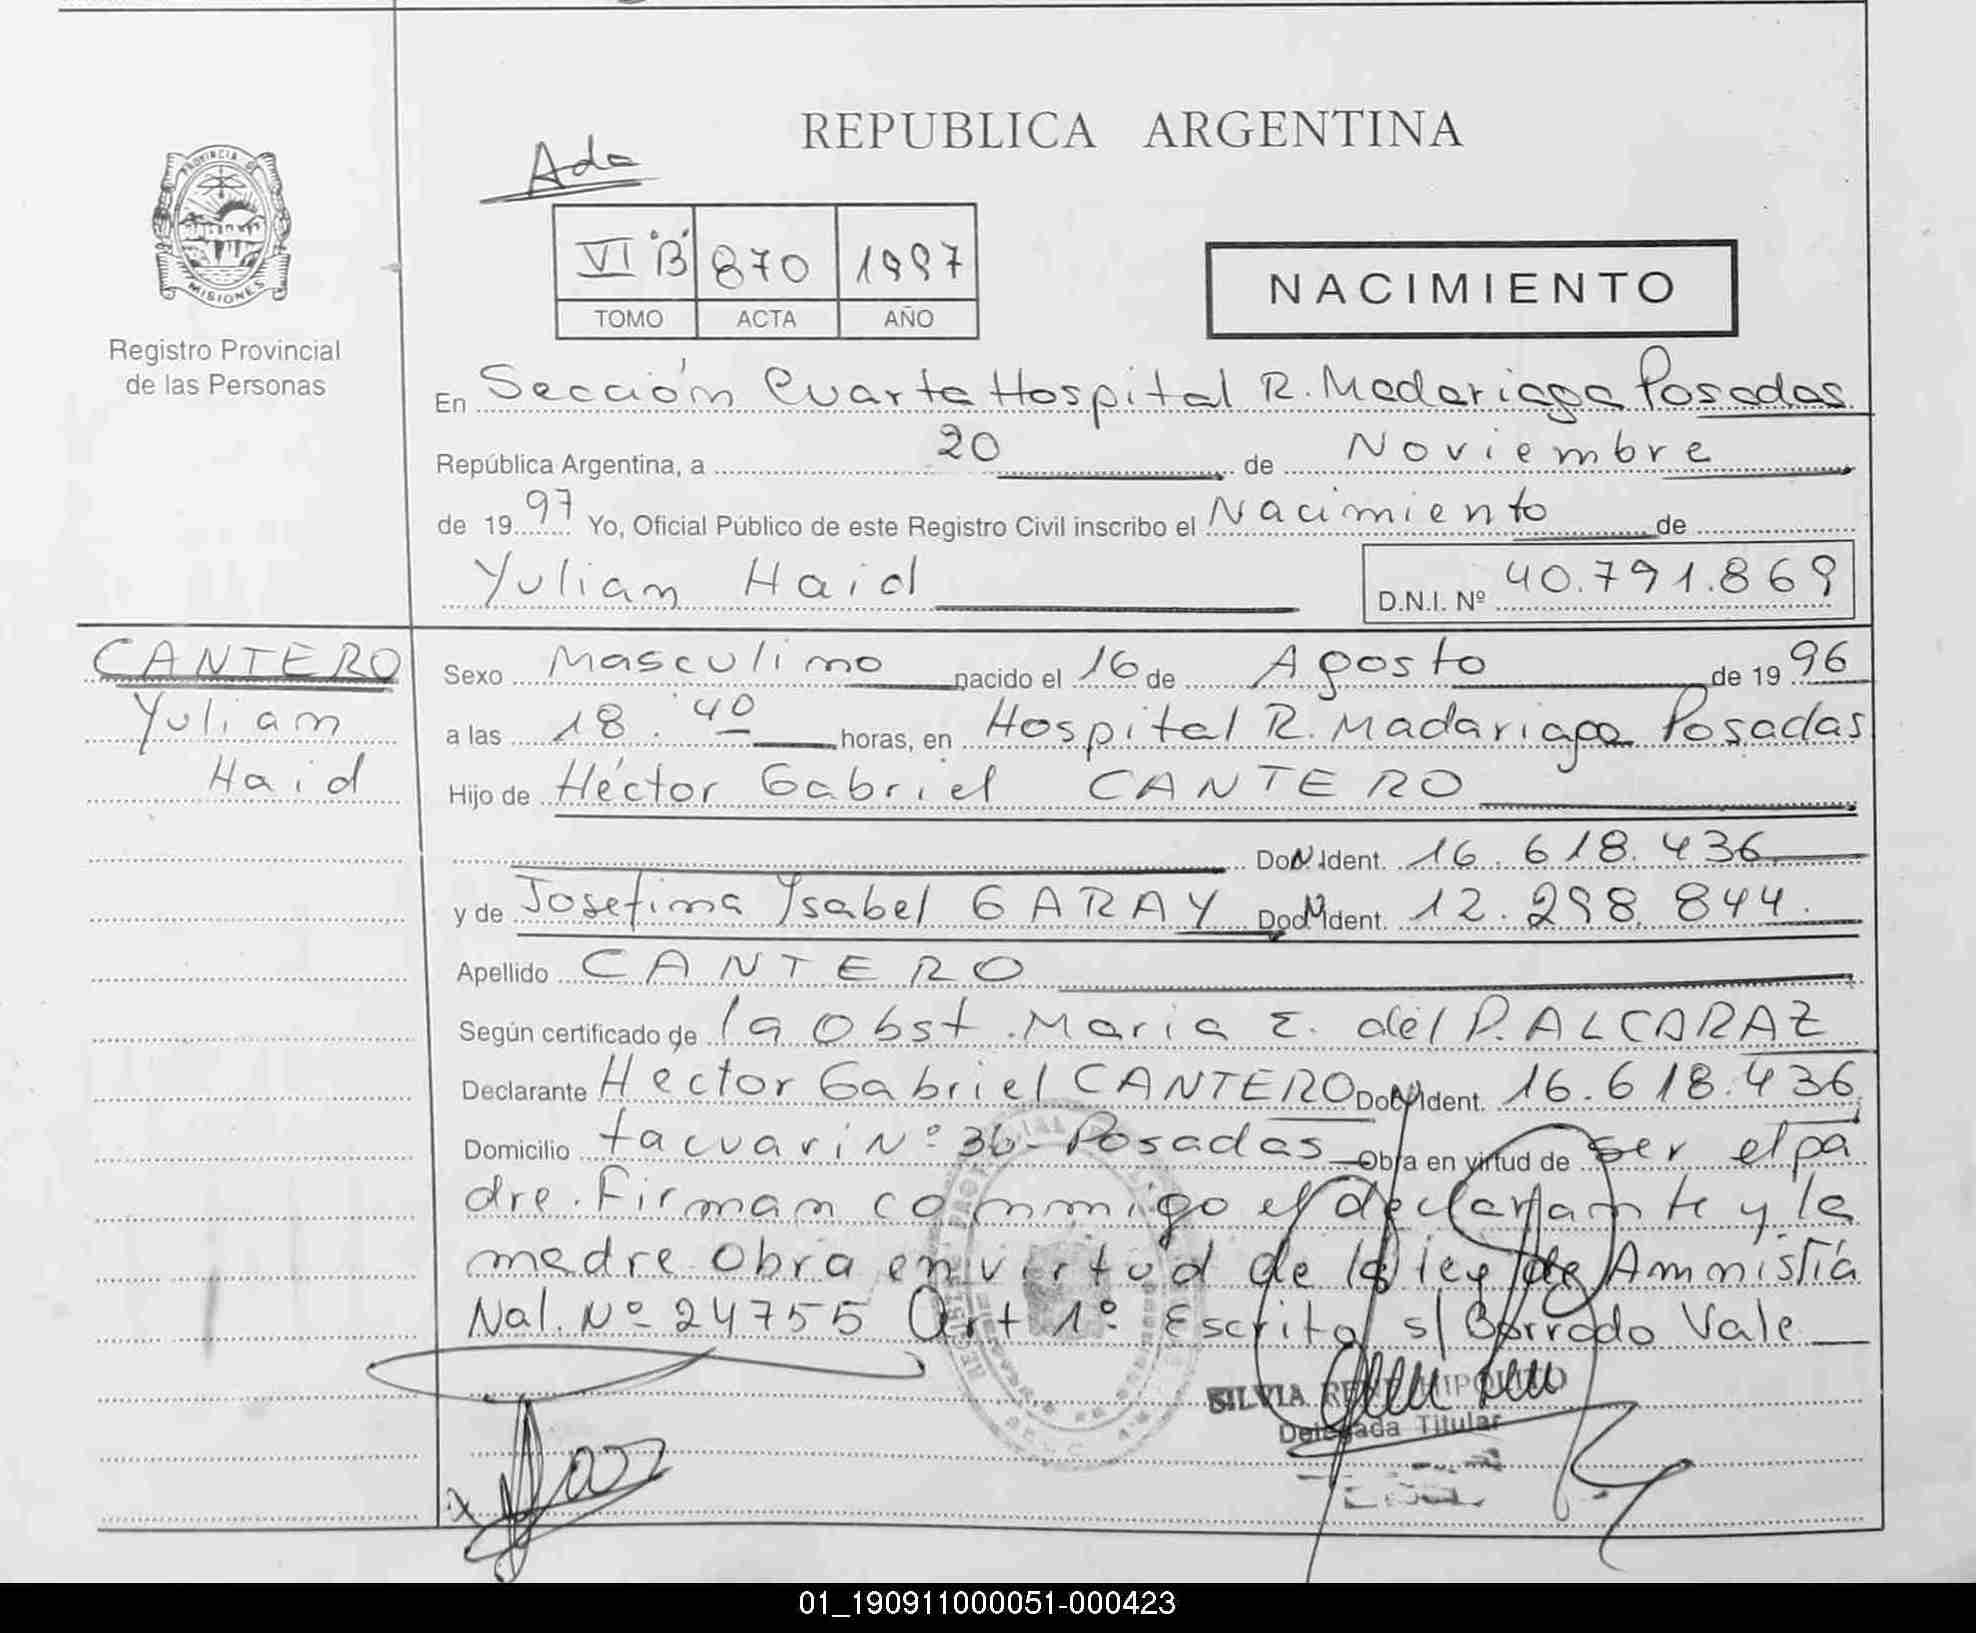 REPUBLICA ARGENTINA
Ada
PROVINCIA DE
MISIONES
VI "B" 870 1997
TOMO ACTA AÑO
NACIMIENTO
Registro Provincial
de las Personas
En Sección Cuarta Hospital R. Madariaga Posadas
República Argentina, a 20 de Noviembre
de 1997 Yo, Oficial Público de este Registro Civil inscribo el Nacimiento de
Yulian Haid D.N.I. Nº 40.791.869
CANTERO
Yulian
Haid
Sexo Masculino nacido el 16 de Agosto de 1996
a las 18.40 horas, en Hospital R. Madariaga Posadas
Hijo de Héctor Gabriel CANTERO
Doc. N. Ident. 16.618.436
y de Josefina Ysabel GARAY Doc. N. Ident. 12.298.844.
Apellido CANTERO
Según certificado de la Obst. Maria E. del P. ALCARAZ
Declarante Hector Gabriel CANTERO Doc. N. Ident. 16.618.436
Domicilio tacuari Nº 36 - Posadas Obra en virtud de ser el pa
dre. Firman conmigo el declarante y la
madre Obra en virtud de la ley de Amnistía
Nal. Nº 24755 Art 1º Escrito s/ Borrado Vale
SILVIA RENE HIPOLITO
Delegada Titular
01_190911000051-000423